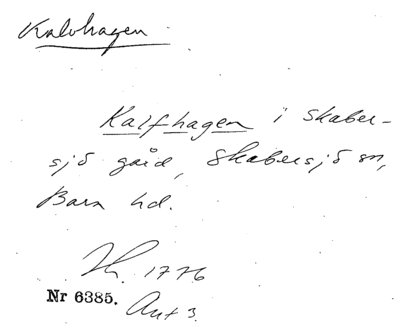 Kalvhagen
Kalfhagen i Skaber-
sjö gård, Skabersjö sn,
Bara hd.
1776
Nr 6385.
Ant 3